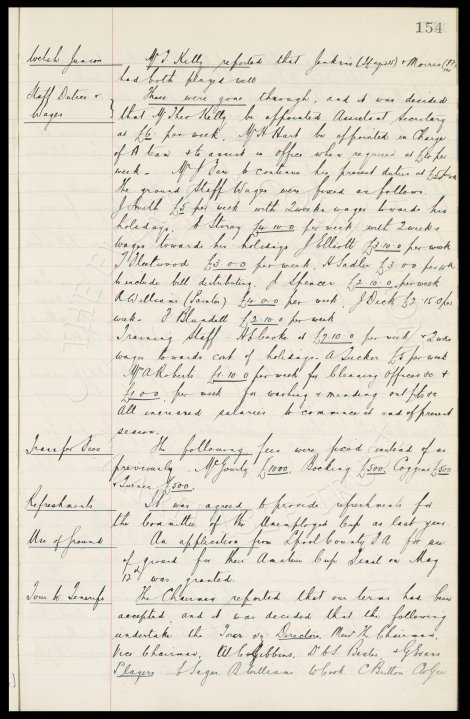 154
Welsh Juniors Mr T. Kelly reported that Jenkins & Morris
had both played well
Staff Duties & These were gone through, and it was decided
Wages that Mr Theo Kelly be appointed Assistant Secretary
at £6 per week. Mr H Hart be appointed in Charge
of A team & to assist in office when required at per
week. Mr J to continue his present duties at
The ground Staff Wages were fixed as follows.
J Smith £5 per week with 2 weeks wages towards his
holidays. E Storey £4.10.0 per week with 2 weeks
wages towards his holidays J Elliott £3.10 per week
T Fleetwood £3 0 0 per week. H Sadler £3 0 0 per wk
to include bill distributing. J Spencer £2.10.0. per week
R Williams (Painter) £4 0 0 per week. J Dick £2.15.0 per
week. J Blundell £2.10.0 per week
Training Staff. H E Cooke at £7.10.0 per week & 2 wks
wages towards cost of holidays. A Tucker £5 per week
Mrs A Roberts £1.10.0 per week for Cleaning Offices &c &
£1 0 0 per week for washing & mending outfits &c
All increased salaries to commence at end of present
season.
Transfer Fees The following fees were fixed instead of as
previously. McGourty £1000, Bocking £500. Coggins £500
& Turner £500.
Refreshments It was agreed to provide refreshments for
the Committee of the Unemployed Cup as last year.
Use of Ground An application from L'pool County F A for use
of ground for their Amateur Cup Final on May
12th was granted.
Tour to Tenerife The Chairman reported that our terms had been
accepted, and it was decided that the following
undertake the Tour viz Directors Messrs The Chairman,
Vice Chairman, W C Gibbins, & G Evans
Players E Sagar R Williams W Cook C Britton C Gee